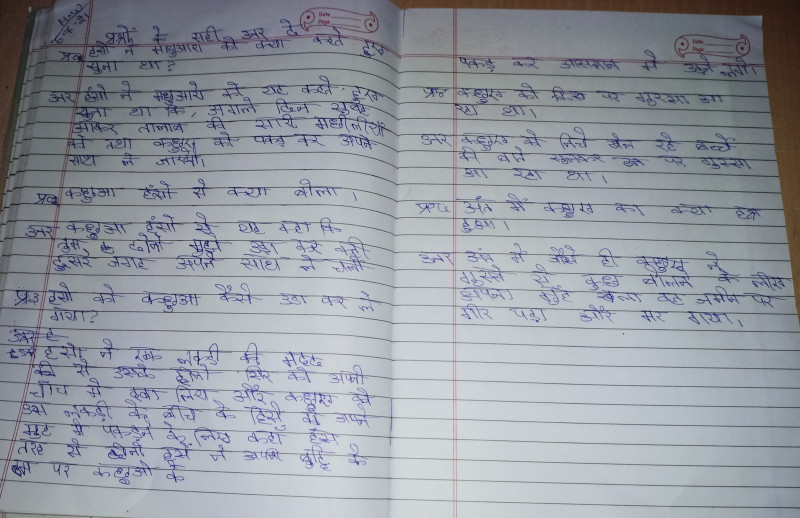 H.W
प्रश्नो के सही उत्तर दे
Date
Page
प्र1 हंसो ने मछुआरो को क्या कहते हुए
सुना था?
उत्तर हंसो ने मछुआरो को यह कहते हुए
सुना था कि अगले दिन सुबह
आकर तालाब की सारी मछलीयों
को तथा कछुए को पकड़ कर अपने
साथ ले जाएंगे।
प्र2 कछुआ हंसो से क्या बोला।
उत्तर कछुआ हंसो से यह कहा कि
तुम दोनो मुझे उड़ा कर कही
दुसरे जगह अपने साथ ले चलो
प्र3 हंसो को कछुआ कैसे उड़ा कर ले
गया?
उत्तर हंसो ने एक लकड़ी की मदद
से उसके दोनो सिरे को अपनी
चोंच में दबा लिया और कछुए को
उस लकड़ी के बीच के हिस्से को अपने
मुह में पकड़ने के लिए कहा इस
तरह से दोनो हंसों ने अपने बुद्धि के
पर कछुओ के
Date
Page
पकड़ कर आसमान में उड़ने लगे।
प्र4 कछुए को किस पर गुस्सा आ
रहा था।
उत्तर कछुए को निचे खेल रहे बच्चों
की बाते सुनकर उन पर गुस्सा
आ रहा था।
प्र5 अंत में कछुए का क्या
हुआ।
उत्तर अंत में जैसे ही कछुए ने
गुस्से से कुछ बोलने के लीए
अपना मुँह खोला वह जमीन पर
गीर पड़ा और मर गया।